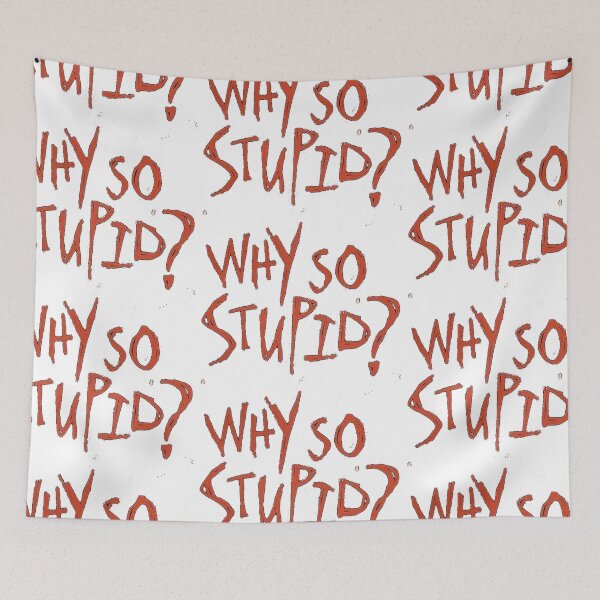 TUPID?
WHY SO
STUPID?
WHY SO
STUPID?
WHY SO
WHY SO
STUPID?
WHY SO
STUPID?
WHY SO
STUPID?
STUPID
WHY SO
STUPID
WHY SO
STUPID
WHY SO